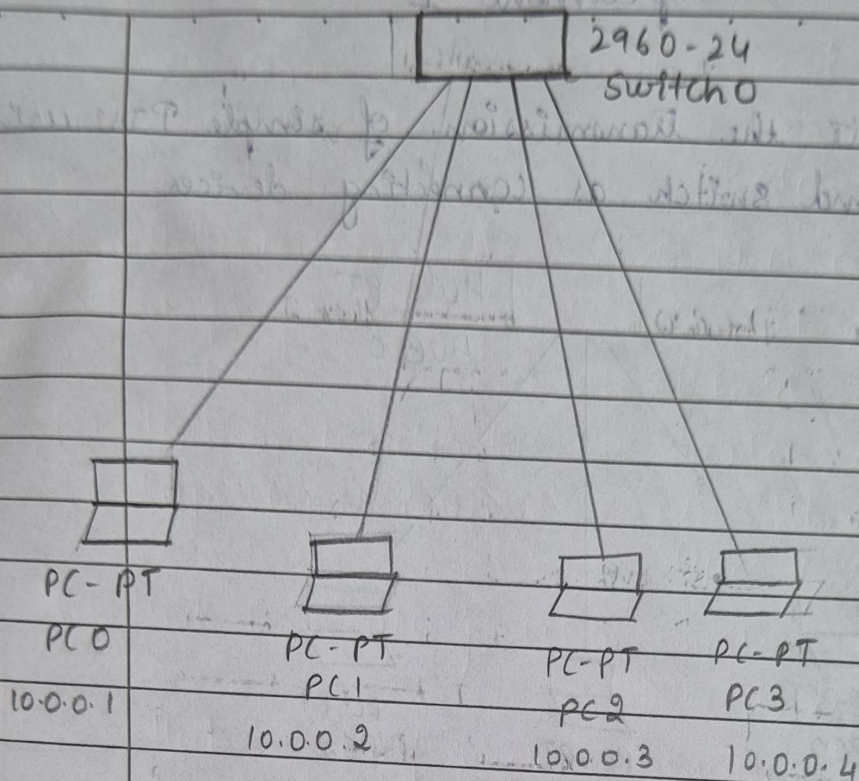 2960-24
Switch0
PC-PT
PC0
10.0.0.1
PC-PT
PC1
10.0.0.2
PC-PT
PC2
10.0.0.3
PC-PT
PC3
10.0.0.4